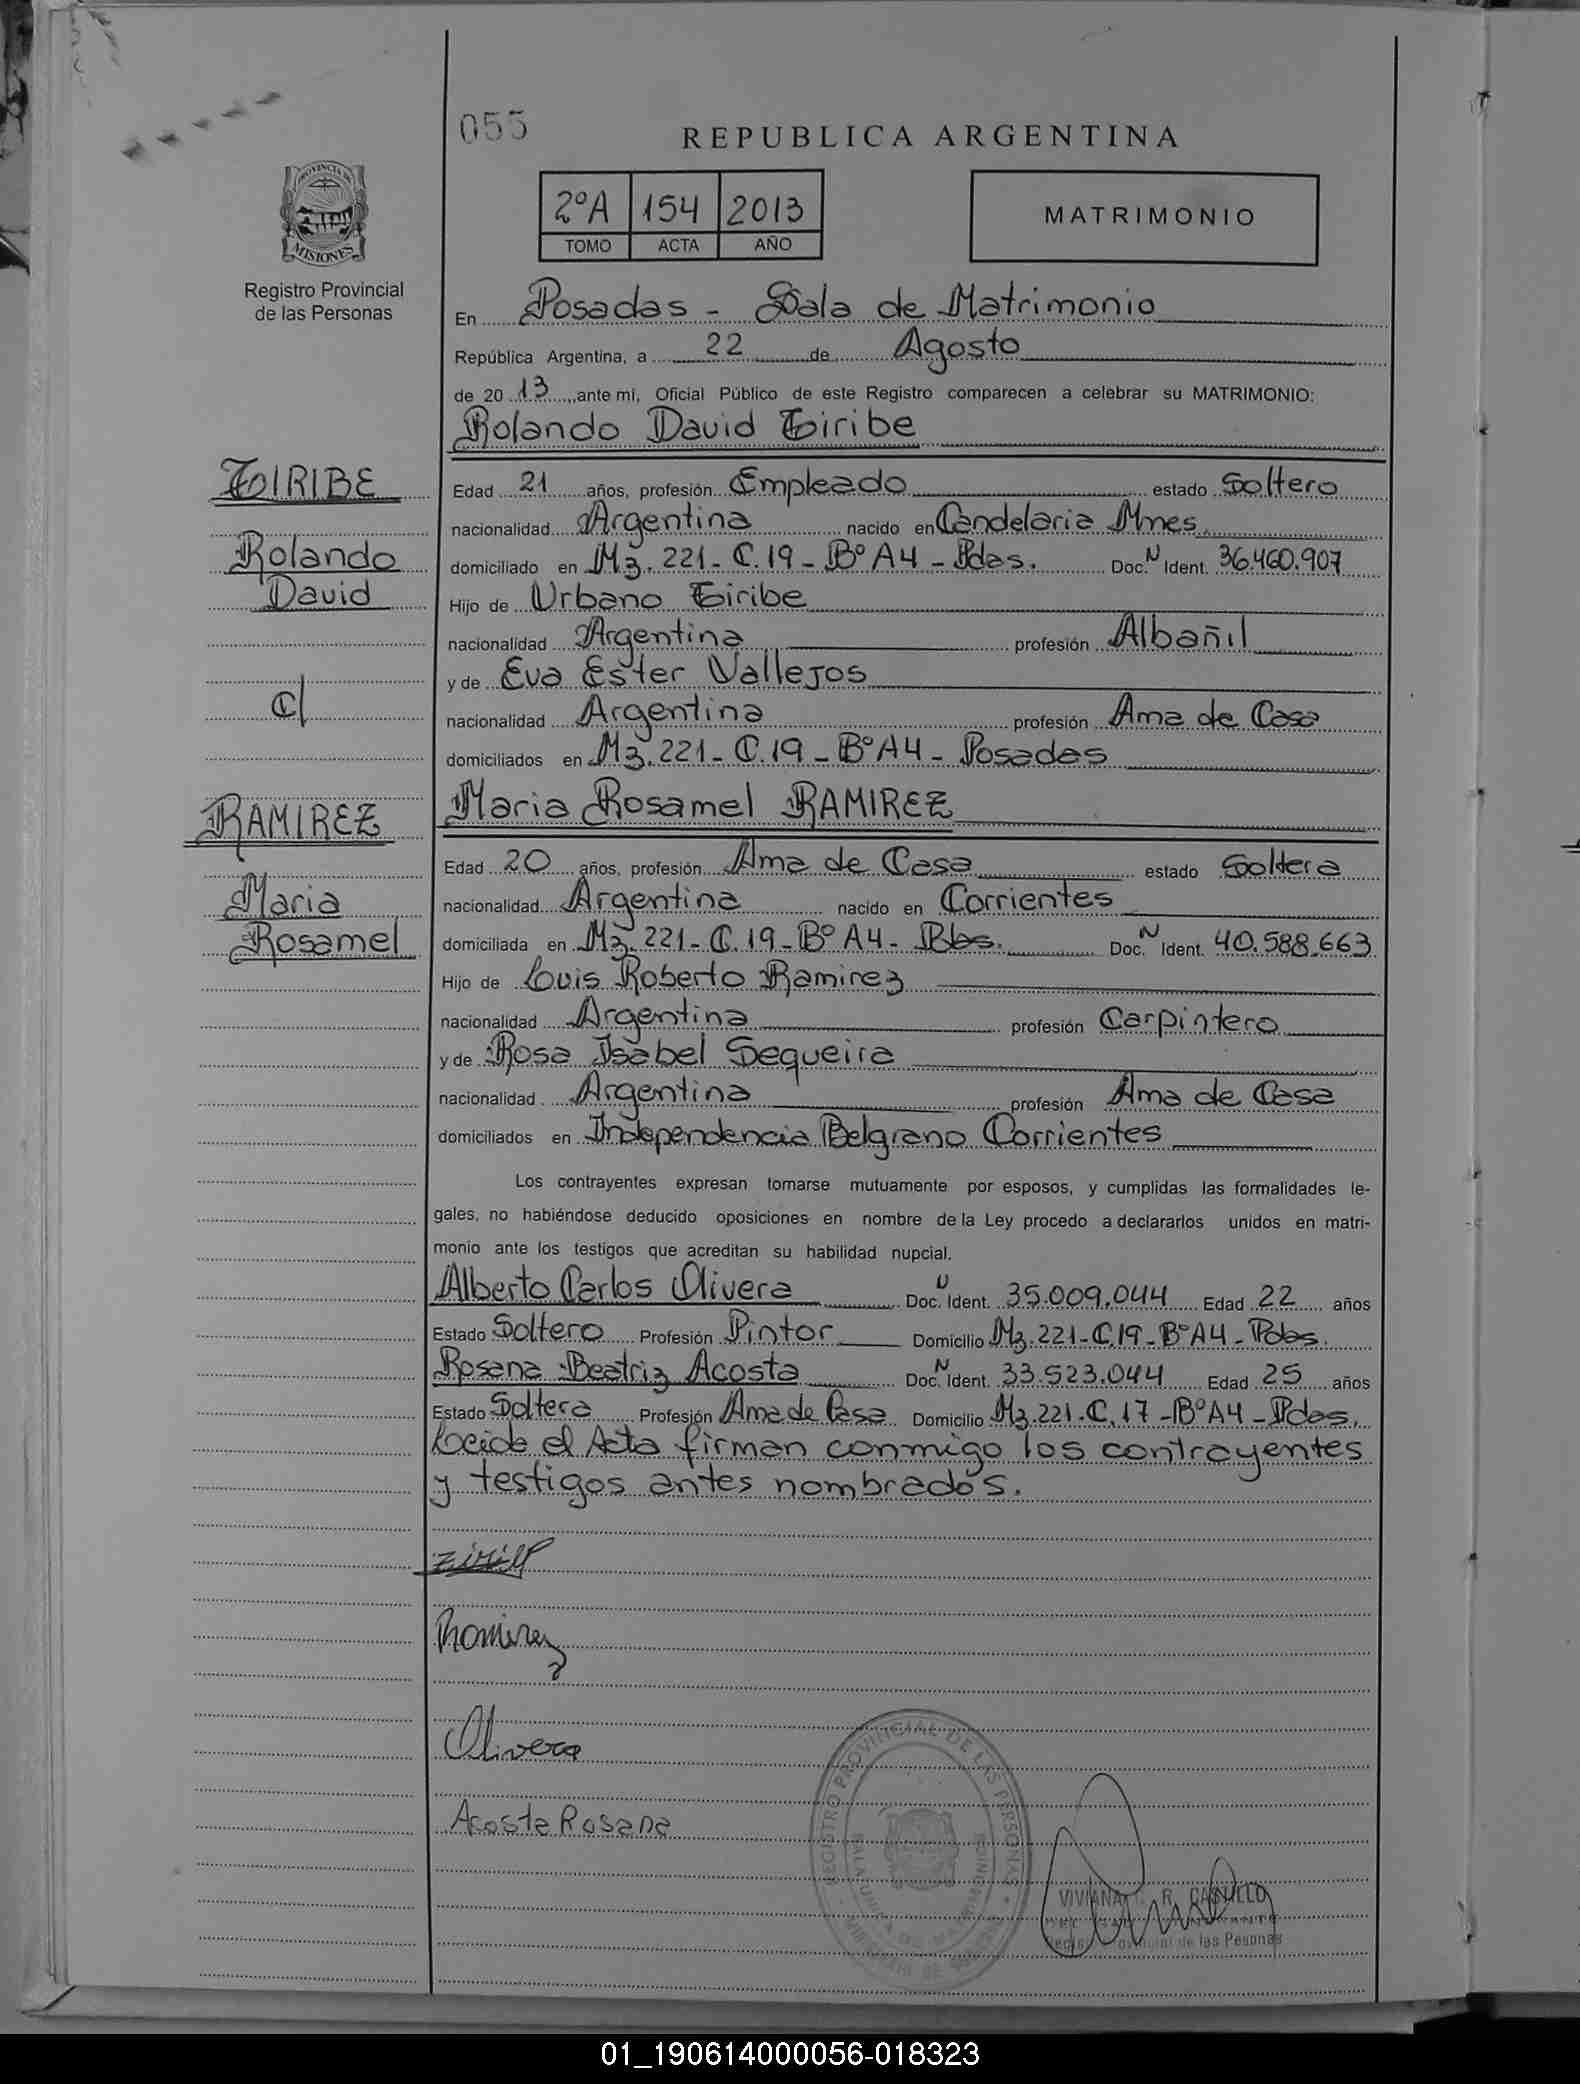 055
REPUBLICA ARGENTINA
2ºA 154 2013
TOMO ACTA AÑO
MATRIMONIO
PROVINCIA DE
MISIONES
Registro Provincial
de las Personas
En Posadas - Sala de Matrimonio
República Argentina, a 22 de Agosto
de 20 13, ante mi, Oficial Público de este Registro comparecen a celebrar su MATRIMONIO:
Rolando David Tiribe
TIRIBE
Rolando
David
c/
RAMIREZ
Maria
Rosamel
Edad 21 años, profesión Empleado estado Soltero
nacionalidad Argentina nacido en Candelaria Mnes.
domiciliado en Mz. 221 - C. 19 - Bº A4 - Pdas. Doc. N Ident. 36.460.907
Hijo de Urbano Tiribe
nacionalidad Argentina profesión Albañil
y de Eva Ester Vallejos
nacionalidad Argentina profesión Ama de Casa
domiciliados en Mz. 221 - C. 19 - Bº A4 - Posadas
Maria Rosamel RAMIREZ
Edad 20 años, profesión Ama de Casa estado Soltera
nacionalidad Argentina nacido en Corrientes
domiciliada en Mz. 221 - C. 19 - Bº A4 - Doc. N Ident. 40.588.663
Hijo de Luis Roberto Ramirez
nacionalidad Argentina profesión Carpintero
y de Rosa Isabel Sequeira
nacionalidad Argentina profesión Ama de Casa
domiciliados en Independencia Belgrano Corrientes
Los contrayentes expresan tomarse mutuamente por esposos, y cumplidas las formalidades le-
gales, no habiéndose deducido oposiciones en nombre de la Ley procedo a declararlos unidos en matri-
monio ante los testigos que acreditan su habilidad nupcial.
Alberto Carlos Olivera Doc. N Ident. 35.009.044 Edad 22 años
Estado Soltero Profesión Pintor Domicilio Mz. 221 - C. 19 - Bº A4 - Pdas.
Rosana Beatriz Acosta Doc. N Ident. 33.523.044 Edad 25 años
Estado Soltera Profesión Ama de Casa Domicilio Mz. 221 - C. 17 - Bº A4 - Pdas.
Leida el Acta firman conmigo los contrayentes
y testigos antes nombrados.
Ramirez
Olivera
Acosta Rosana
REGISTRO PROVINCIAL DE LAS PERSONAS
VIVIANA R. CASTILLO
de las Personas
01_190614000056-018323